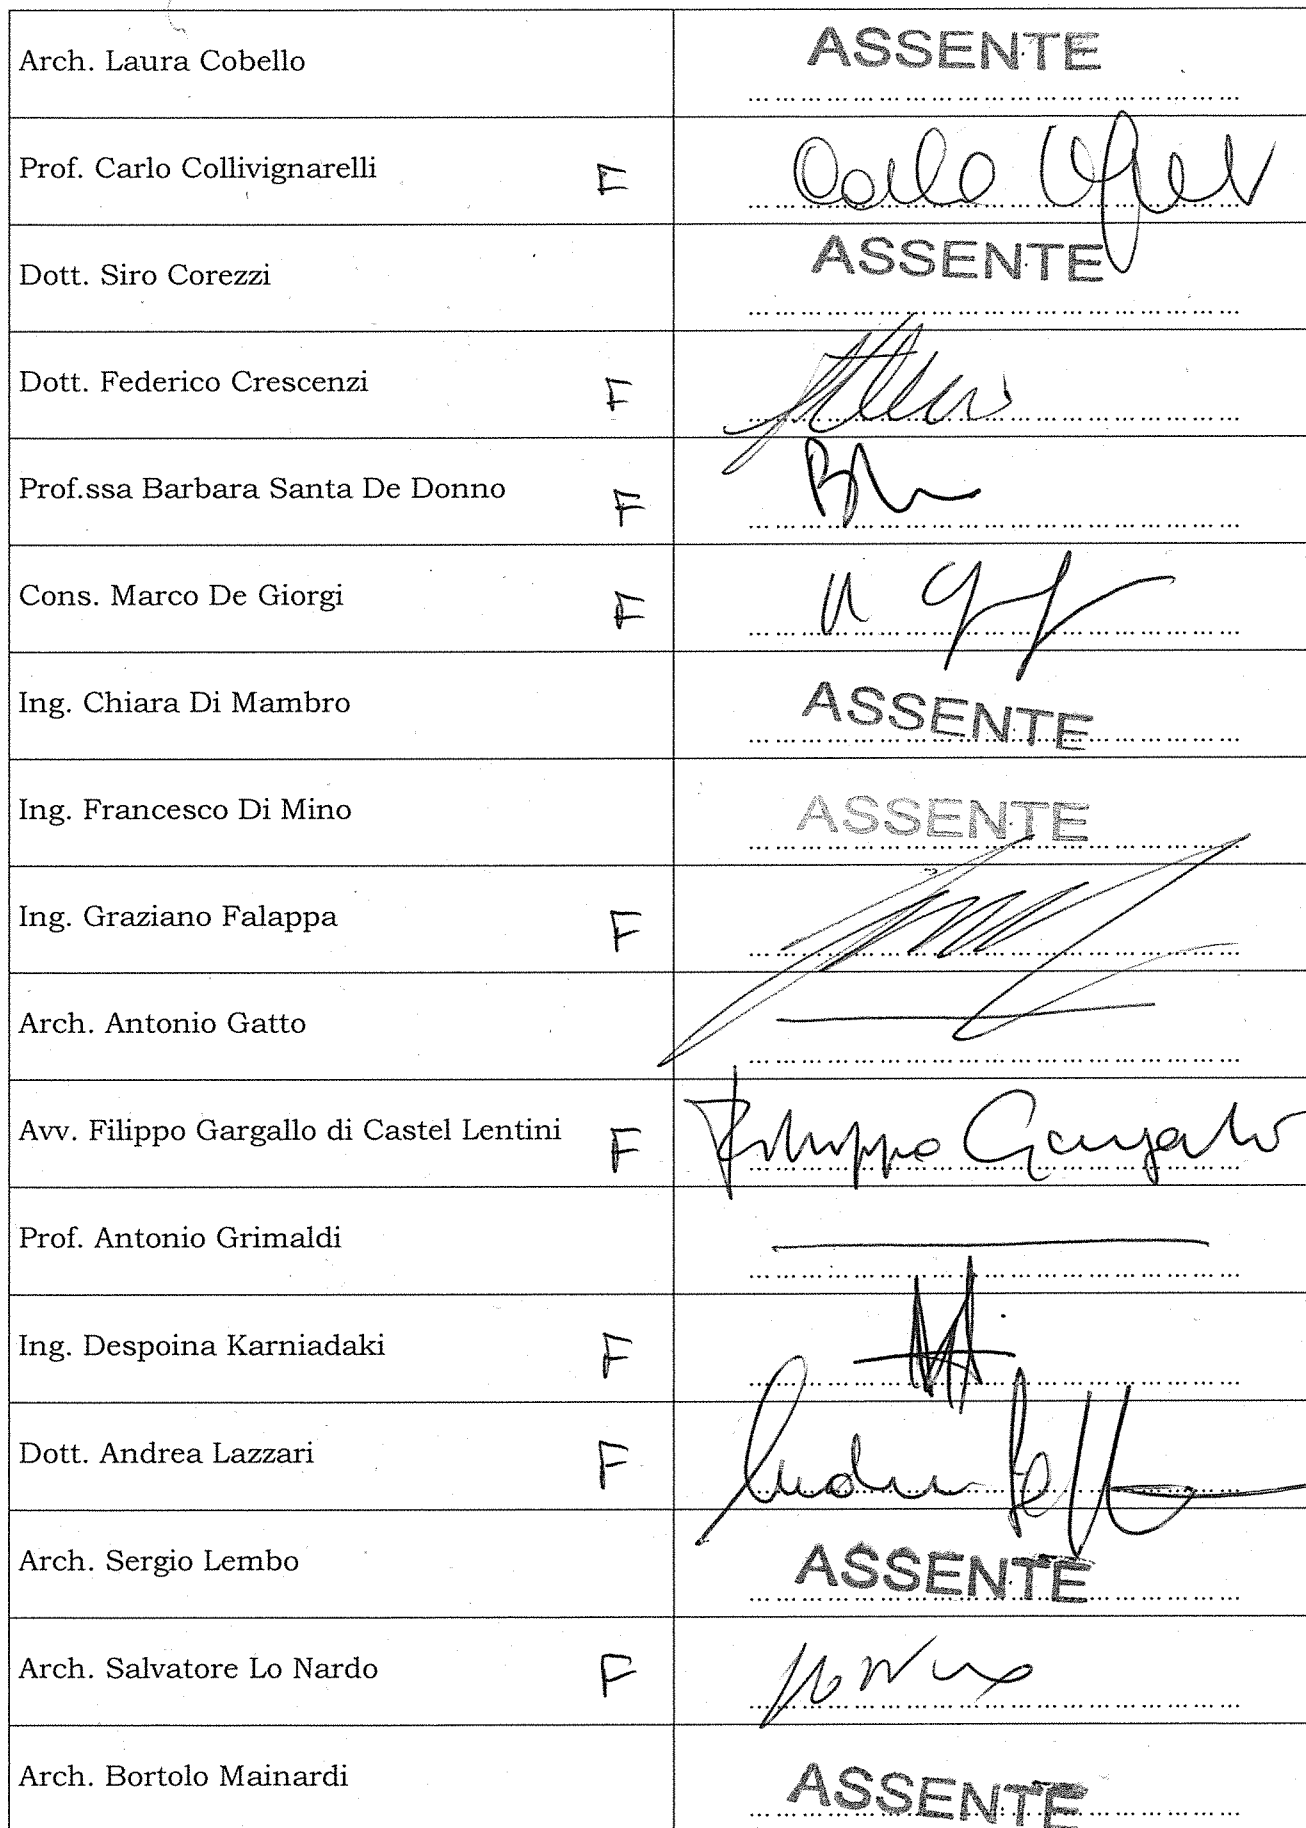 Arch. Laura Cobello ASSENTE
Prof. Carlo Collivignarelli F Carlo
Dott. Siro Corezzi ASSENTE
Dott. Federico Crescenzi F
Prof.ssa Barbara Santa De Donno F
Cons. Marco De Giorgi F
Ing. Chiara Di Mambro ASSENTE
Ing. Francesco Di Mino ASSENTE
Ing. Graziano Falappa F
Arch. Antonio Gatto
Avv. Filippo Gargallo di Castel Lentini F Filippo Gargallo
Prof. Antonio Grimaldi
Ing. Despoina Karniadaki F
Dott. Andrea Lazzari F Andrea
Arch. Sergio Lembo ASSENTE
Arch. Salvatore Lo Nardo F
Arch. Bortolo Mainardi ASSENTE